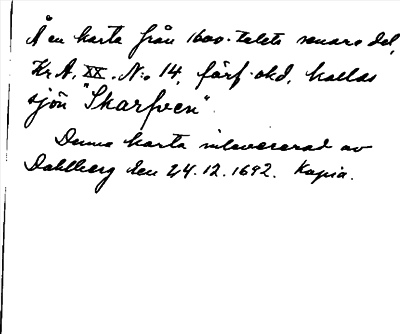 Å en karta från 1600-talets senare del,
Kr.A. XX. N:o 14, förf. okd, kallas
sjön "Skarfven".
Denna karta inlevererad av
Dahlberg den 24.12.1692. Kopia.